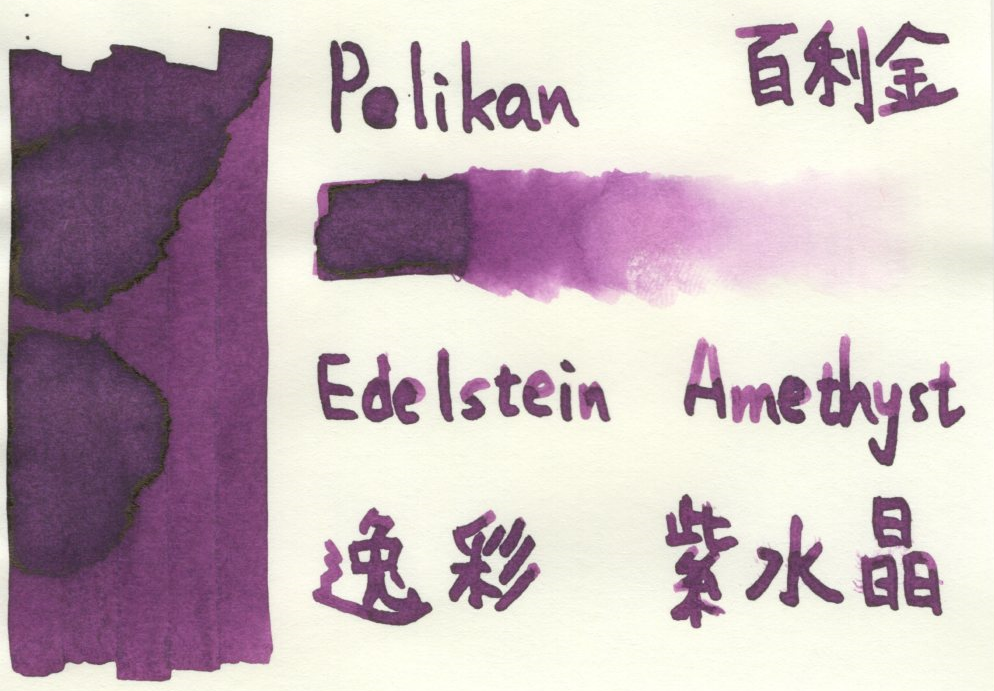 Pelikan 百利金
Edelstein Amethyst
逸彩 紫水晶